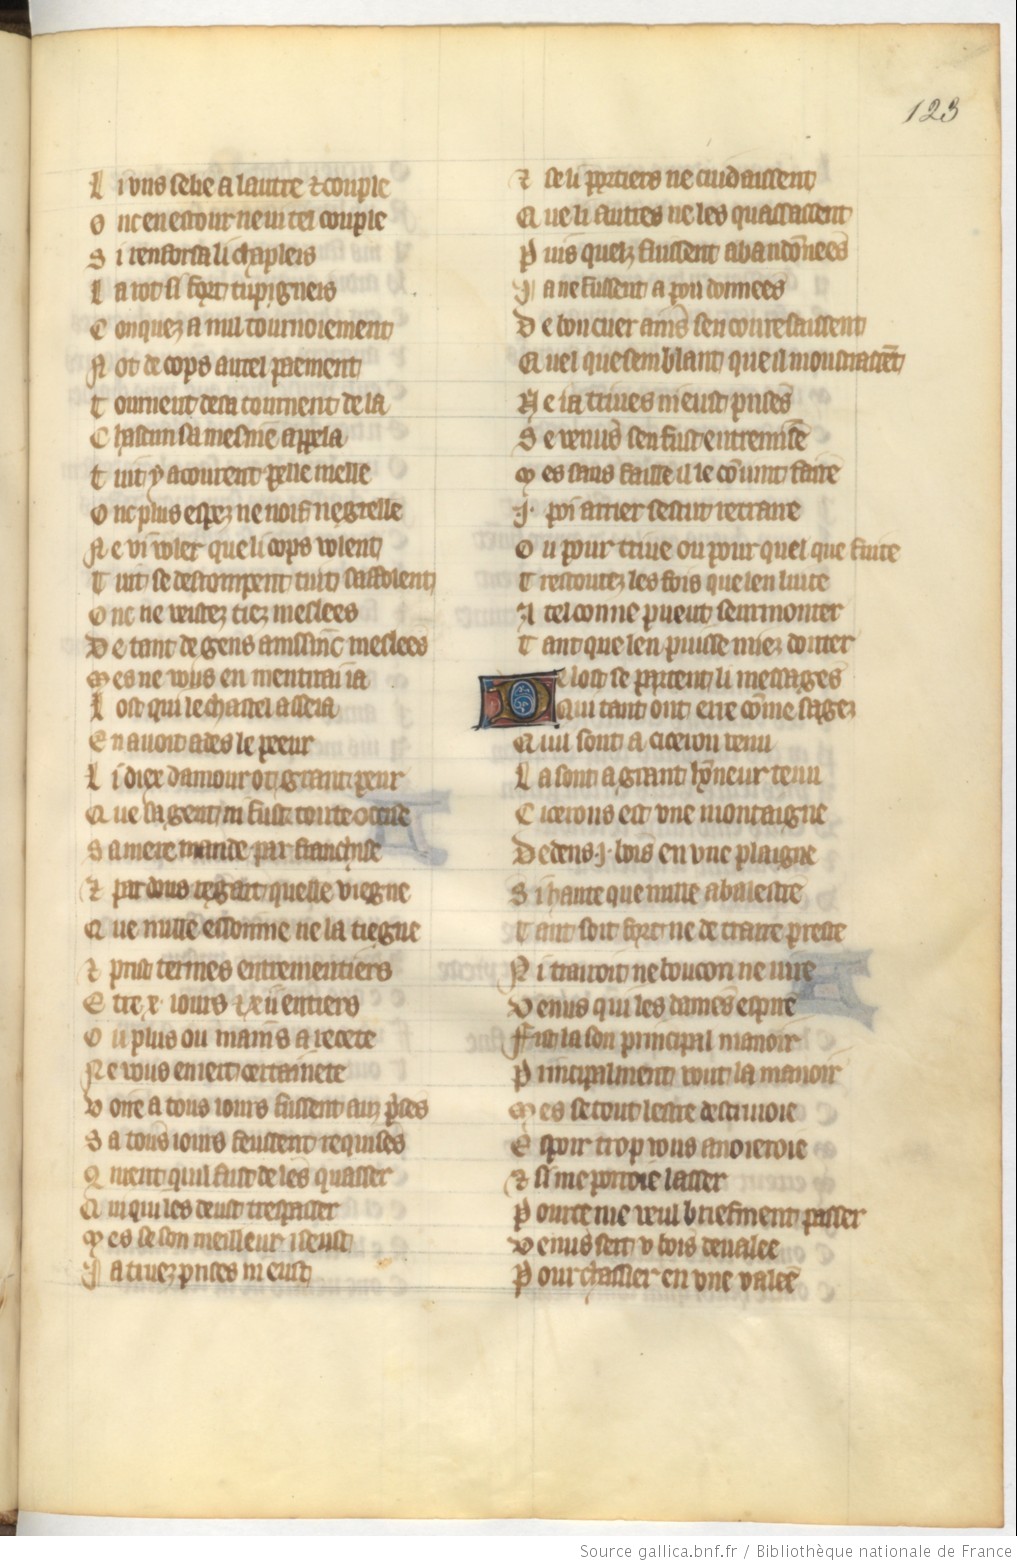 123
L i uns se lie a lautre 7 couple
O nc en estour ne vi tel couple
S i renforsa li chapleis
L a rot si fort tupigneis
C onquez a nul tournoiement
N ot de cops autel paement
T ournent deca tournent dela
C hascun sa mesnie appela
T uit y acourent pelle melle
O nc plus espez ne noif ne gresle
N e vi voler que li cops volent
T uit se derompent tuit safolent
O nc ne veistez tiez meslees
D e tant de gens ainssinc meslees
M es ne vous en mentirai ia
L ost qui le chastel asseia
E n auoit ades le peeur
L i diex damour ot grant peur
Q ue sa gent ni fust toute occise
S a mere mande par franchise
7 par dous regart quelle viegne
Q ue nulle essoinne ne la tiegne
7 prist termes entrementiers
E tre .x. iours 7 xii entiers
O u plus ou mains a recete
N e vous en iert certainete
V oire a tous iours fussent aus prises
S a tous iours feussent requises
Q uient quil fust de les quasser
Q ui qui les deust trespasser
M es se son meilleur i seust
J a tiuez prises ni eust
7 se li portiers ne cuidaissent
Q ue li autres ne les quassassent
P uis quelz fussent abandonnees
J a ne fussent a pou donnees
D e bon cuer ains sen courrsaissent
Q uel que semblant que il moustrassent
N e ia triues ni eust prises
S e venus sen fust entremise
M es sans faille il le couuint faire
.I. poi arrier sestut retraire
O u pour triue ou pour quel que fuite
T restoutez les fois que len luite
A tel conne pueut seurmonter
T ant que len puisse miez donter
D e lost se partent li messages
Q ui tant ont erre comme sagez
Q uil sont a citeron venu
L a sont a grant honneur tenu
C iterons est vne montaigne
D edens .i. bois en vne plaigne
S i haute que nulle abalestre
T ant soit fort ne de traire preste
N i trairoit ne boucon ne uire
V enus qui les dames espire
F ist la son principal manoir
P rincipalment vout la manoir
M es se tout lestre descriuoie
E spoir trop vous anoieroie
7 si me porroie lasser
P ource me veul briefment passer
V enus sert v bois deualee
P our chassier en vne valee
Source gallica.bnf.fr / Bibliothèque nationale de France